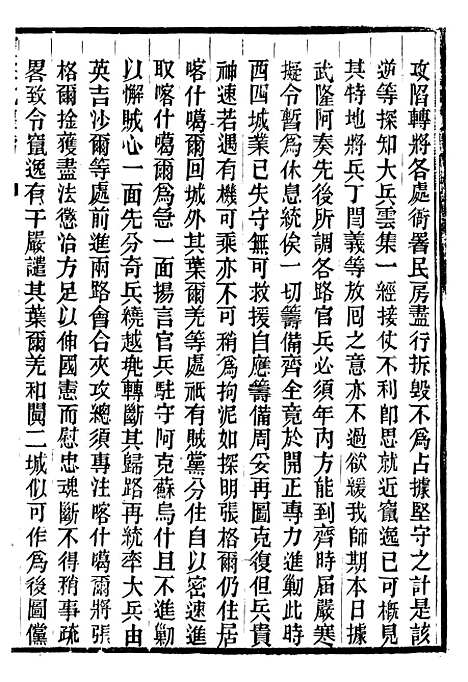 攻陷轉將各處衙署民房盡行拆毀不爲占據堅守之計是該
逆等探知大兵雲集一經接仗不利卽思就近竄逸已可槪見
其特地將兵丁閆義等放回之意亦不過欲緩我師期本日據
武隆阿奏先後所調各路官兵必須年內方能到齊時届嚴寒
擬令暫爲休息統俟一切籌備齊全竟於開正專力進勦此時
西四城業已失守無可救援自應籌備周妥再圖克復但兵貴
神速若遇有機可乘亦不可稍爲拘泥如探明張格爾仍住居
喀什噶爾回城外其葉爾羌等處祇有賊黨分住自以密速進
取喀什噶爾爲急一面揚言官兵駐守阿克蘇烏什且不進勦
以懈賊心一面先分奇兵繞越
轉斷其歸路再統率大兵由
英吉沙爾等處前進兩路會合夾攻總須專注喀什噶爾將張
格爾擒獲盡法懲治方足以伸國憲而慰忠魂斷不得稍事疏
畧致令竄逸有干嚴譴其葉爾羌和闐二城似可作爲後圖儻